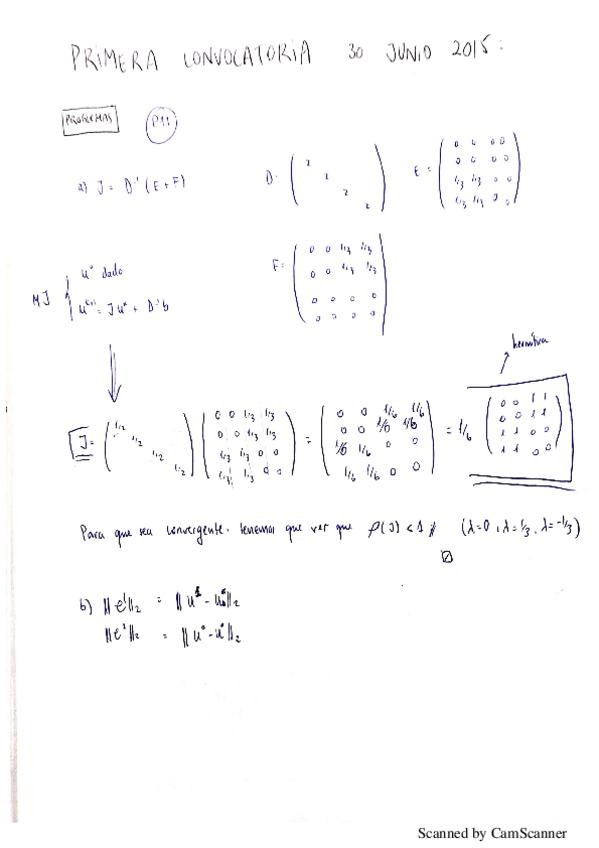 PRIMERA CONVOCATORIA 30 JUNIO 2015:
PROBLEMAS P11
a) J = D⁻¹ (E+F)
D = ( 2 2 2 2 )
E = ( 0 0 0 0
0 0 0 0
1/3 1/3 0 0
1/3 1/3 0 0 )
MJ { u⁰ dado
uᵏ⁺¹ = J uᵏ + D⁻¹b
F = ( 0 0 1/3 1/3
0 0 1/3 1/3
0 0 0 0
0 0 0 0 )
hermítica
J = ( 1/2 1/2 1/2 1/2 ) ( 0 0 1/3 1/3
0 0 1/3 1/3
1/3 1/3 0 0
1/3 1/3 0 0 )
= ( 0 0 1/6 1/6
0 0 1/6 1/6
1/6 1/6 0 0
1/6 1/6 0 0 )
= 1/6 ( 0 0 1 1
0 0 1 1
1 1 0 0
1 1 0 0 )
Para que sea convergente. tenemos que ver que ρ(J) < 1 // (λ=0, λ=1/3, λ=-1/3)
b) ‖e¹‖₂ = ‖u¹ - u⁰‖₂
‖e²‖₂ = ‖u⁰ - u⁰‖₂
Scanned by CamScanner